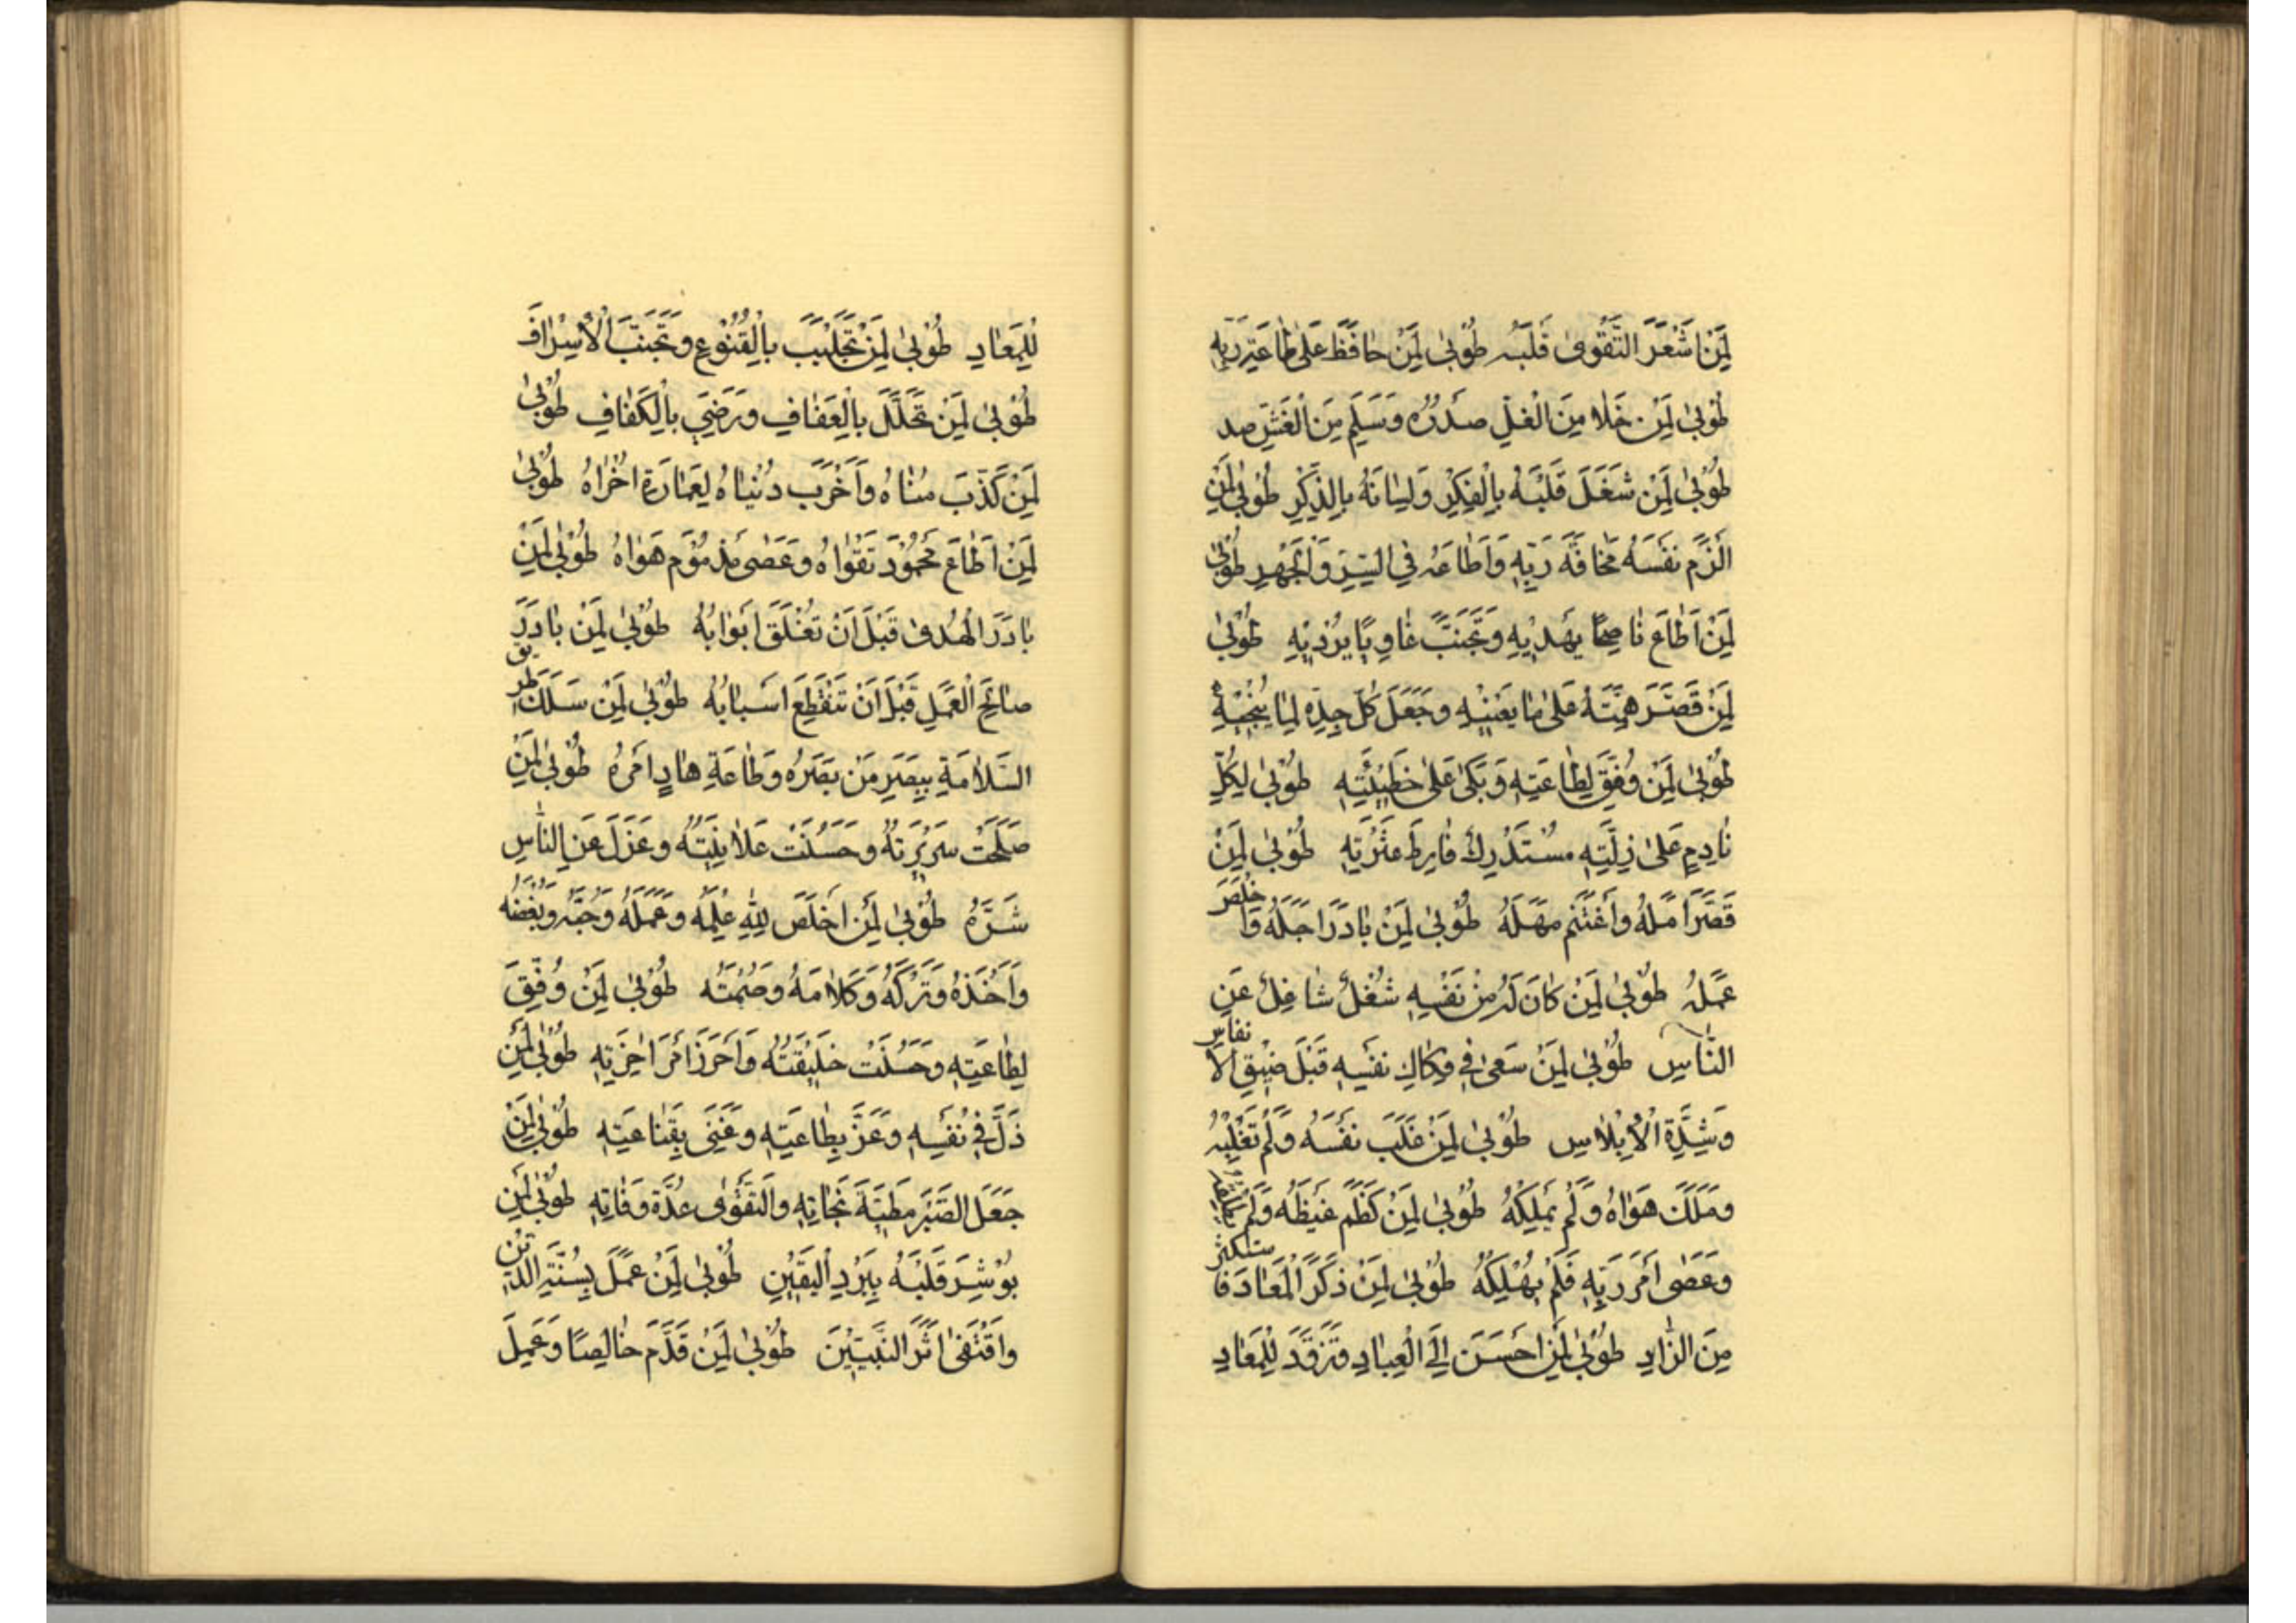 لِمَنْ اَشْعَرَ التَّقْوىٰ قَلْبَهُ طُوْبىٰ لِمَنْ حٰافَظَ عَلىٰ طٰاعَةِ رَبِّهِ
طُوْبىٰ لِمَنْ خَلٰا مِنَ الْغِلِّ صَدْرُهُ وَسَلِمَ مِنَ الْغَشِّ صد
طُوْبىٰ لِمَنْ شَغَلَ قَلْبَهُ بِالْفِكْرِ وَلِسٰانَهُ بِالذِّكْرِ طُوْبىٰ لِمَنْ
اَلْزَمَ نَفْسَهُ مَخٰافَةَ رَبِّهِ وَاَطٰاعَهُ فِي السِّرِّ وَالْجَهْرِ طُوْبىٰ
لِمَنْ اَطٰاعَ نٰاصِحًا يَهْدِيْهِ وَتَجَنَّبَ غٰاوِيًا يُرْدِيْهِ طُوْبىٰ
لِمَنْ قَصَّرَ هِمَّتَهُ عَلىٰ مٰا يَعْنِيْهِ وَجَعَلَ كُلَّ جِدِّهِ لِمٰا يُنْجِيْهِ
طُوْبىٰ لِمَنْ وُفِّقَ لِطٰاعَتِهِ وَبَكىٰ عَلىٰ خَطِيْئَتِهِ طُوْبىٰ لِكُلِّ
نٰادِمٍ عَلىٰ زِلَّتِهِ مُسْتَدْرِكٍ فٰارِطَ عَثْرَتِهِ طُوْبىٰ لِمَنْ
قَصَّرَ اَمَلَهُ وَاَغْتَنَمَ مَهَلَهُ طُوْبىٰ لِمَنْ بٰادَرَ اَجَلَهُ وَاَخْلَصَ
عَمَلَهُ طُوْبىٰ لِمَنْ كٰانَ لَهُ مِنْ نَفْسِهِ شُغْلٌ شٰاغِلٌ عَنِ
النّٰاسِ طُوْبىٰ لِمَنْ سَعىٰ فِي فِكٰاكِ نَفْسِهِ قَبْلَ ضِيْقِ الْاَنفاسِ
وَشِدَّةِ الْاِبْلٰاسِ طُوْبىٰ لِمَنْ غَلَبَ نَفْسَهُ وَلَمْ تَغْلِبْهُ
وَمَلَكَ هَوٰاهُ وَلَمْ يَمْلِكْهُ طُوْبىٰ لِمَنْ كَظَمَ غَيْظَهُ وَلَمْ
وَعَصٰى اَمْرَ رَبِّهِ فَلَمْ يُهْلِكْهُ طُوْبىٰ لِمَنْ ذَكَرَ الْمَعٰادَ فَاستكثر
مِنَ الزّٰادِ طُوْبىٰ لِمَنْ اَحْسَنَ اِلَى الْعِبٰادِ وَتَزَوَّدَ لِلْمَعٰادِ
لِلْمَعٰادِ طُوْبىٰ لِمَنْ تَجَلْبَبَ بِالْقُنُوْعِ وَتَجَنَّبَ الْاِسْرٰافَ
طُوْبىٰ لِمَنْ تَحَلَّلَ بِالْعَفٰافِ وَرَضِيَ بِالْكَفٰافِ طُوْبىٰ
لِمَنْ كَذَّبَ مُنٰاهُ وَاَخْرَبَ دُنْيٰاهُ لِعَمٰارَةِ اُخْرٰاهُ طُوْبىٰ
لِمَنْ اَطٰاعَ مَحْمُوْدَ تَقْوٰاهُ وَعَصٰى مَذْمُوْمَ هَوٰاهُ طُوْبىٰ لِمَنْ
بٰادَرَ الْهُدىٰ قَبْلَ اَنْ تُغْلَقَ اَبْوٰابُهُ طُوْبىٰ لِمَنْ بٰادَرَ
صٰالِحَ الْعَمَلِ قَبْلَ اَنْ تَنْقَطِعَ اَسْبٰابُهُ طُوْبىٰ لِمَنْ سَلَكَ طَريق
السَّلٰامَةِ بِبَصَرِ مَنْ بَصَّرَهُ وَطٰاعَةِ هٰادٍ اَمَرَهُ طُوْبىٰ لِمَنْ
صَلُحَتْ سَرِيْرَتُهُ وَحَسُنَتْ عَلٰانِيَتُهُ وَعَزَلَ عَنِ النّٰاسِ
شَرَّهُ طُوْبىٰ لِمَنْ اَخْلَصَ لِلّٰهِ عِلْمَهُ وَعَمَلَهُ وَحُبَّهُ وَبُغْضَهُ
وَاَخْذَهُ وَتَرْكَهُ وَكَلٰامَهُ وَصُمْتَهُ طُوْبىٰ لِمَنْ وُفِّقَ
لِطٰاعَتِهِ وَحَسُنَتْ خَلِيْقَتُهُ وَاَحْرَزَ اَمْرَ اٰخِرَتِهِ طُوْبىٰ لِمَنْ
ذَلَّ فِي نَفْسِهِ وَعَزَّ بِطٰاعَتِهِ وَغَنِيَ بِقَنٰاعَتِهِ طُوْبىٰ لِمَنْ
جَعَلَ الصَّبْرَ مَطِيَّةَ نَجٰاتِهِ وَالتَّقْوٰى عُدَّةَ وَفٰاتِهِ طُوْبىٰ لِمَنْ
بُوْشِرَ قَلْبَهُ بِبَرْدِ الْيَقِيْنِ طُوْبىٰ لِمَنْ عَمِلَ بِسُنَّةِ الدِّيْنِ
وَاقْتَفىٰ اَثَرَ النَّبِيّيْنَ طُوْبىٰ لِمَنْ قَدَّمَ خٰالِصًا وَعَمِلَ